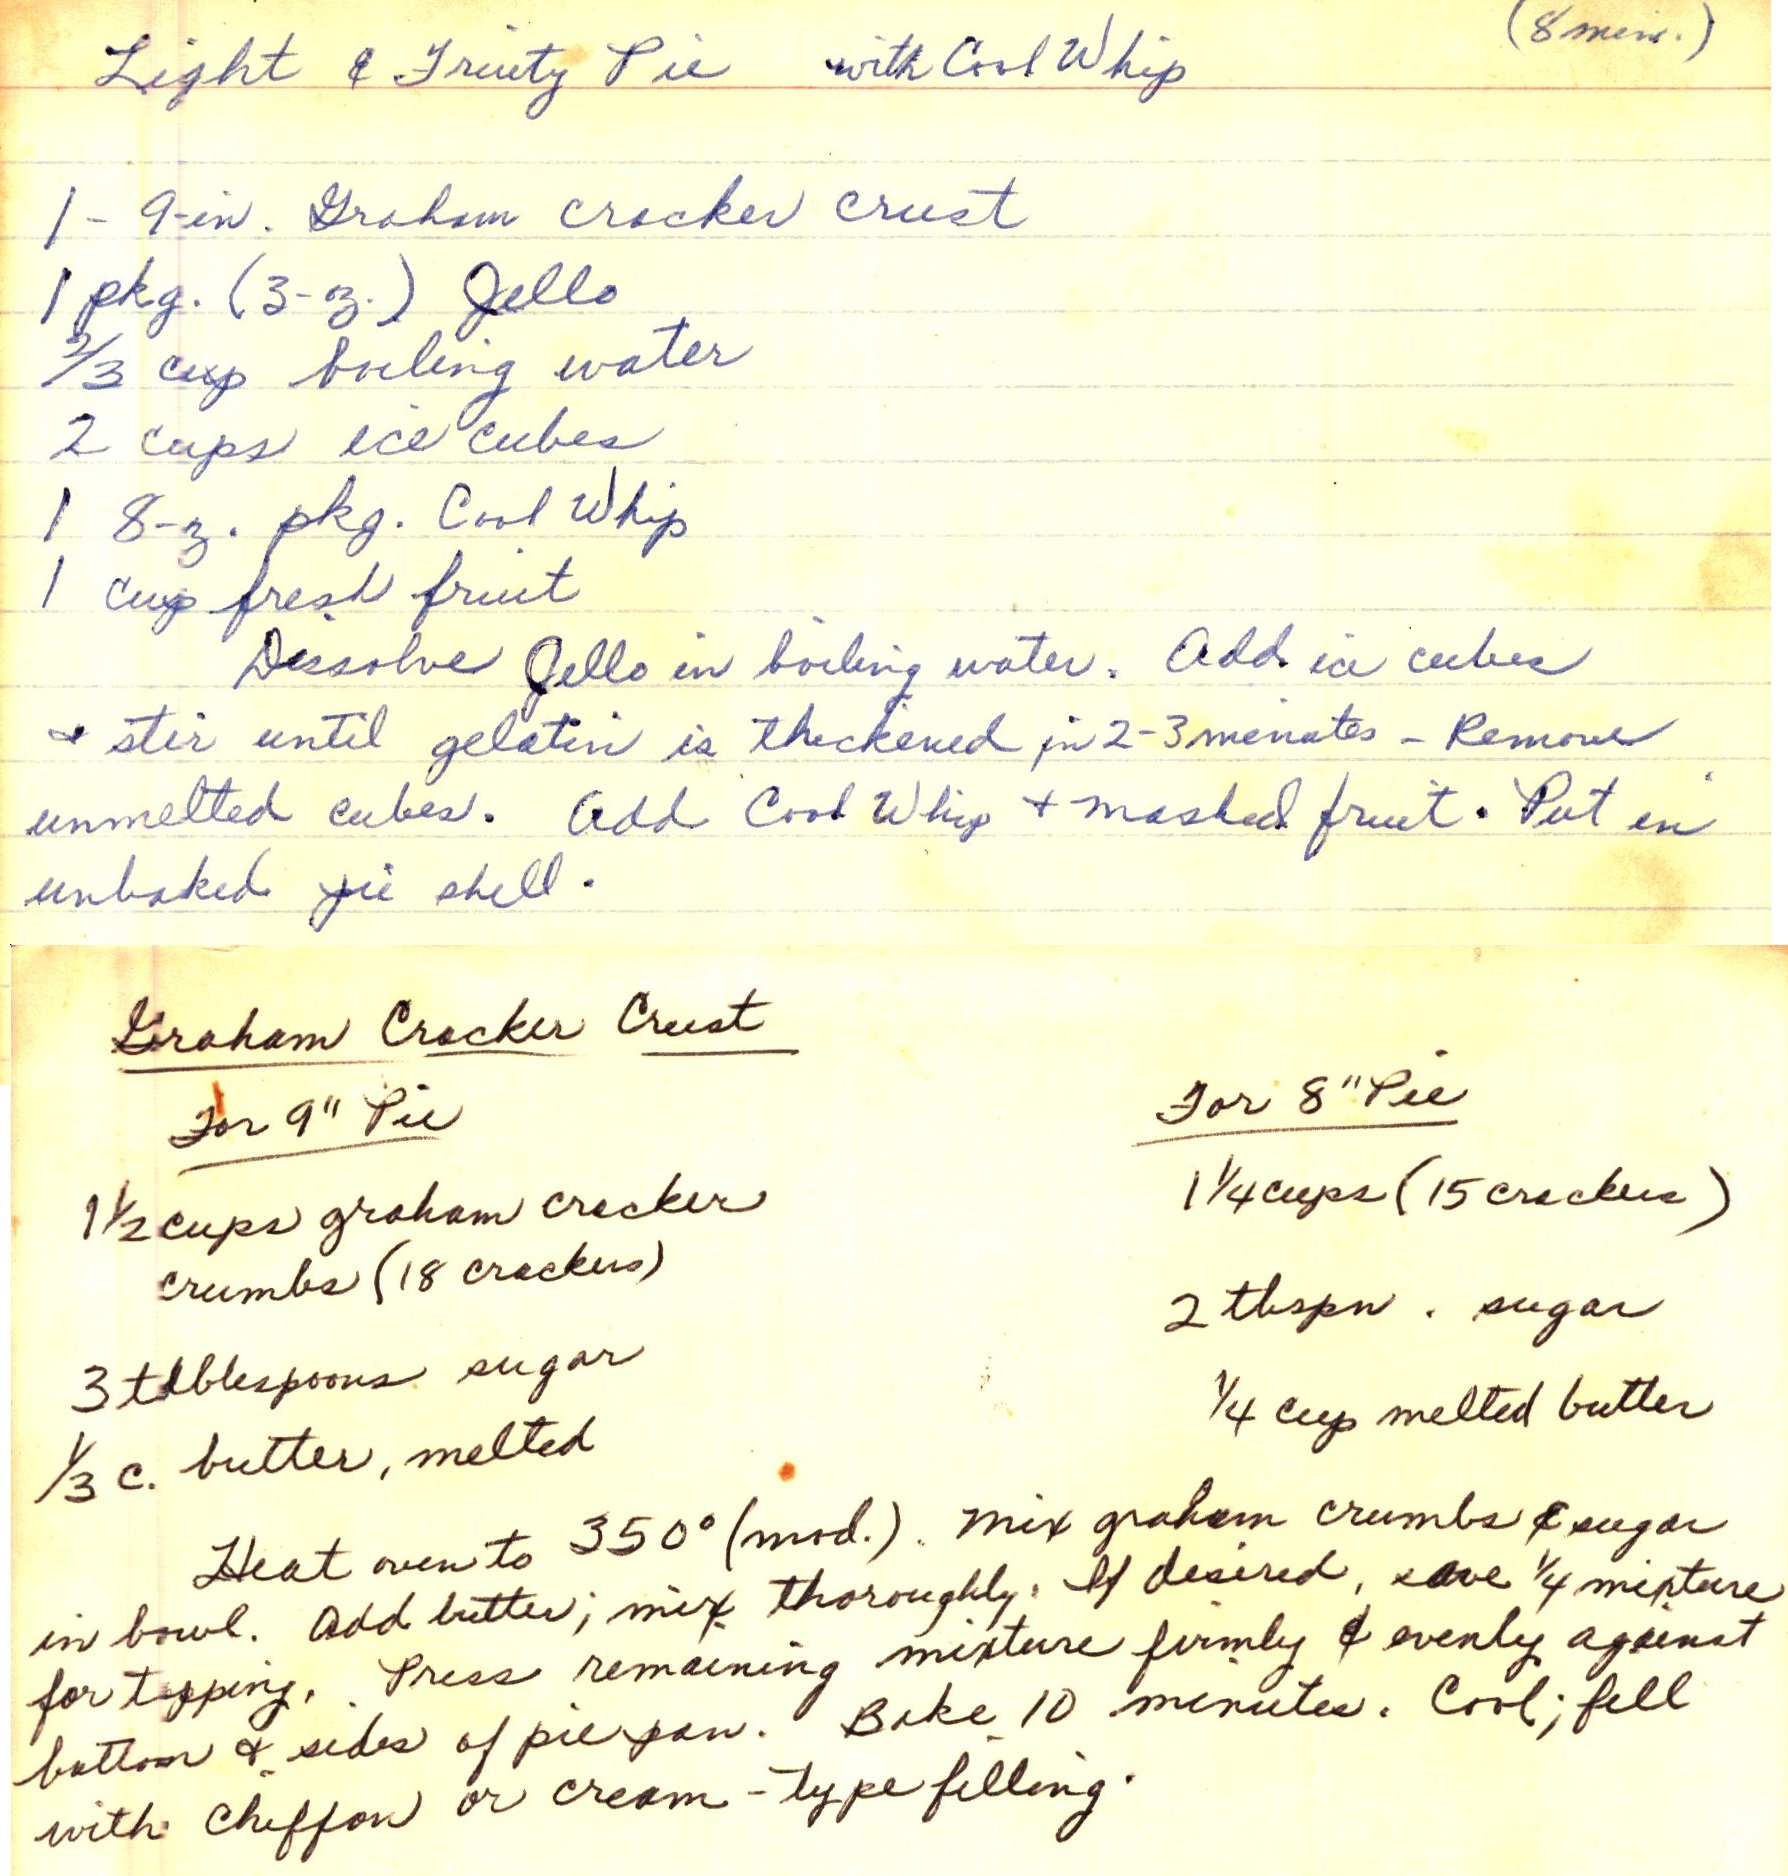 (8 min.)
Light & Fruity Pie with Cool Whip
1 - 9-in. Graham cracker crust
1 pkg. (3-oz.) Jello
2/3 cup boiling water
2 cups ice cubes
1 8-oz. pkg. Cool Whip
1 cup fresh fruit
Dissolve Jello in boiling water. Add ice cubes
& stir until gelatin is thickened in 2-3 minutes - Remove
unmelted cubes. Add Cool Whip + mashed fruit. Put in
unbaked pie shell.
Graham Cracker Crust
For 9" Pie
1 1/2 cups graham cracker
crumbs (18 crackers)
3 tablespoons sugar
1/3 c. butter, melted
For 8" Pie
1 1/4 cups (15 crackers)
2 tbspn. sugar
1/4 cup melted butter
Heat oven to 350° (mod.). Mix graham crumbs & sugar
in bowl. Add butter; mix thoroughly. If desired, save 1/4 mixture
for topping. Press remaining mixture firmly & evenly against
bottom & sides of pie pan. Bake 10 minutes. Cool; fill
with chiffon or cream-type filling.